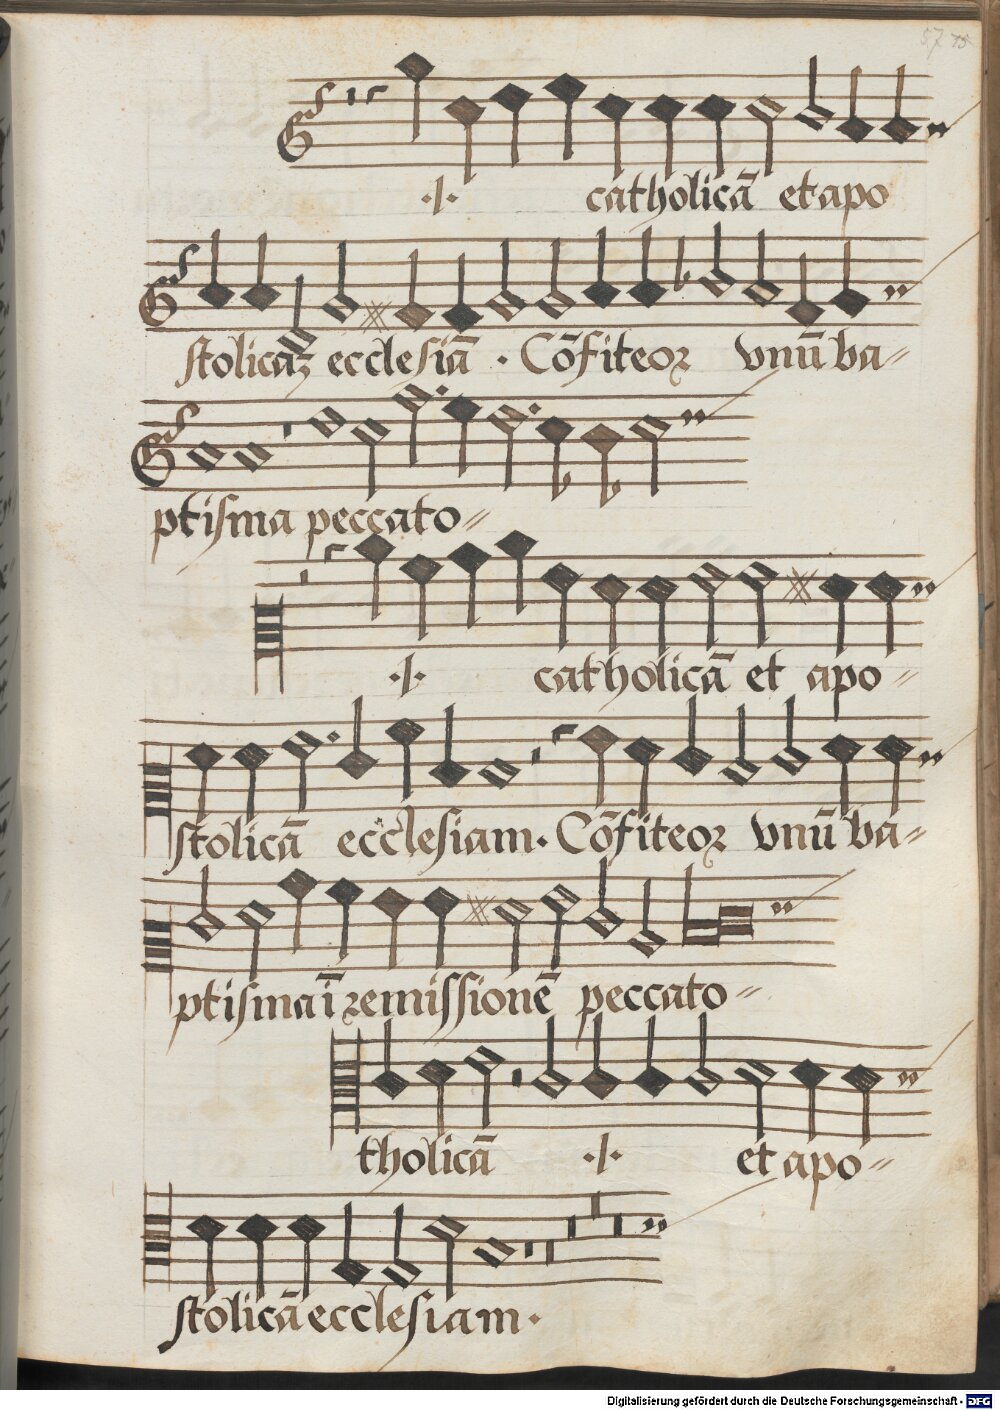 57
·/· catholicā et apo
stolicaꝫ ecclesiā · Cōfiteoꝛ vnū ba=
ptisma peccato=
·/· catholicā et apo=
stolicā ecclesiam· Cōfiteoꝛ vnū ba=
ptisma ī ꝛemissionē peccato=
tholicā ·/· et apo=
stolicā ecclesiam·
Digitalisierung gefördert durch die Deutsche Forschungsgemeinschaft - DFG